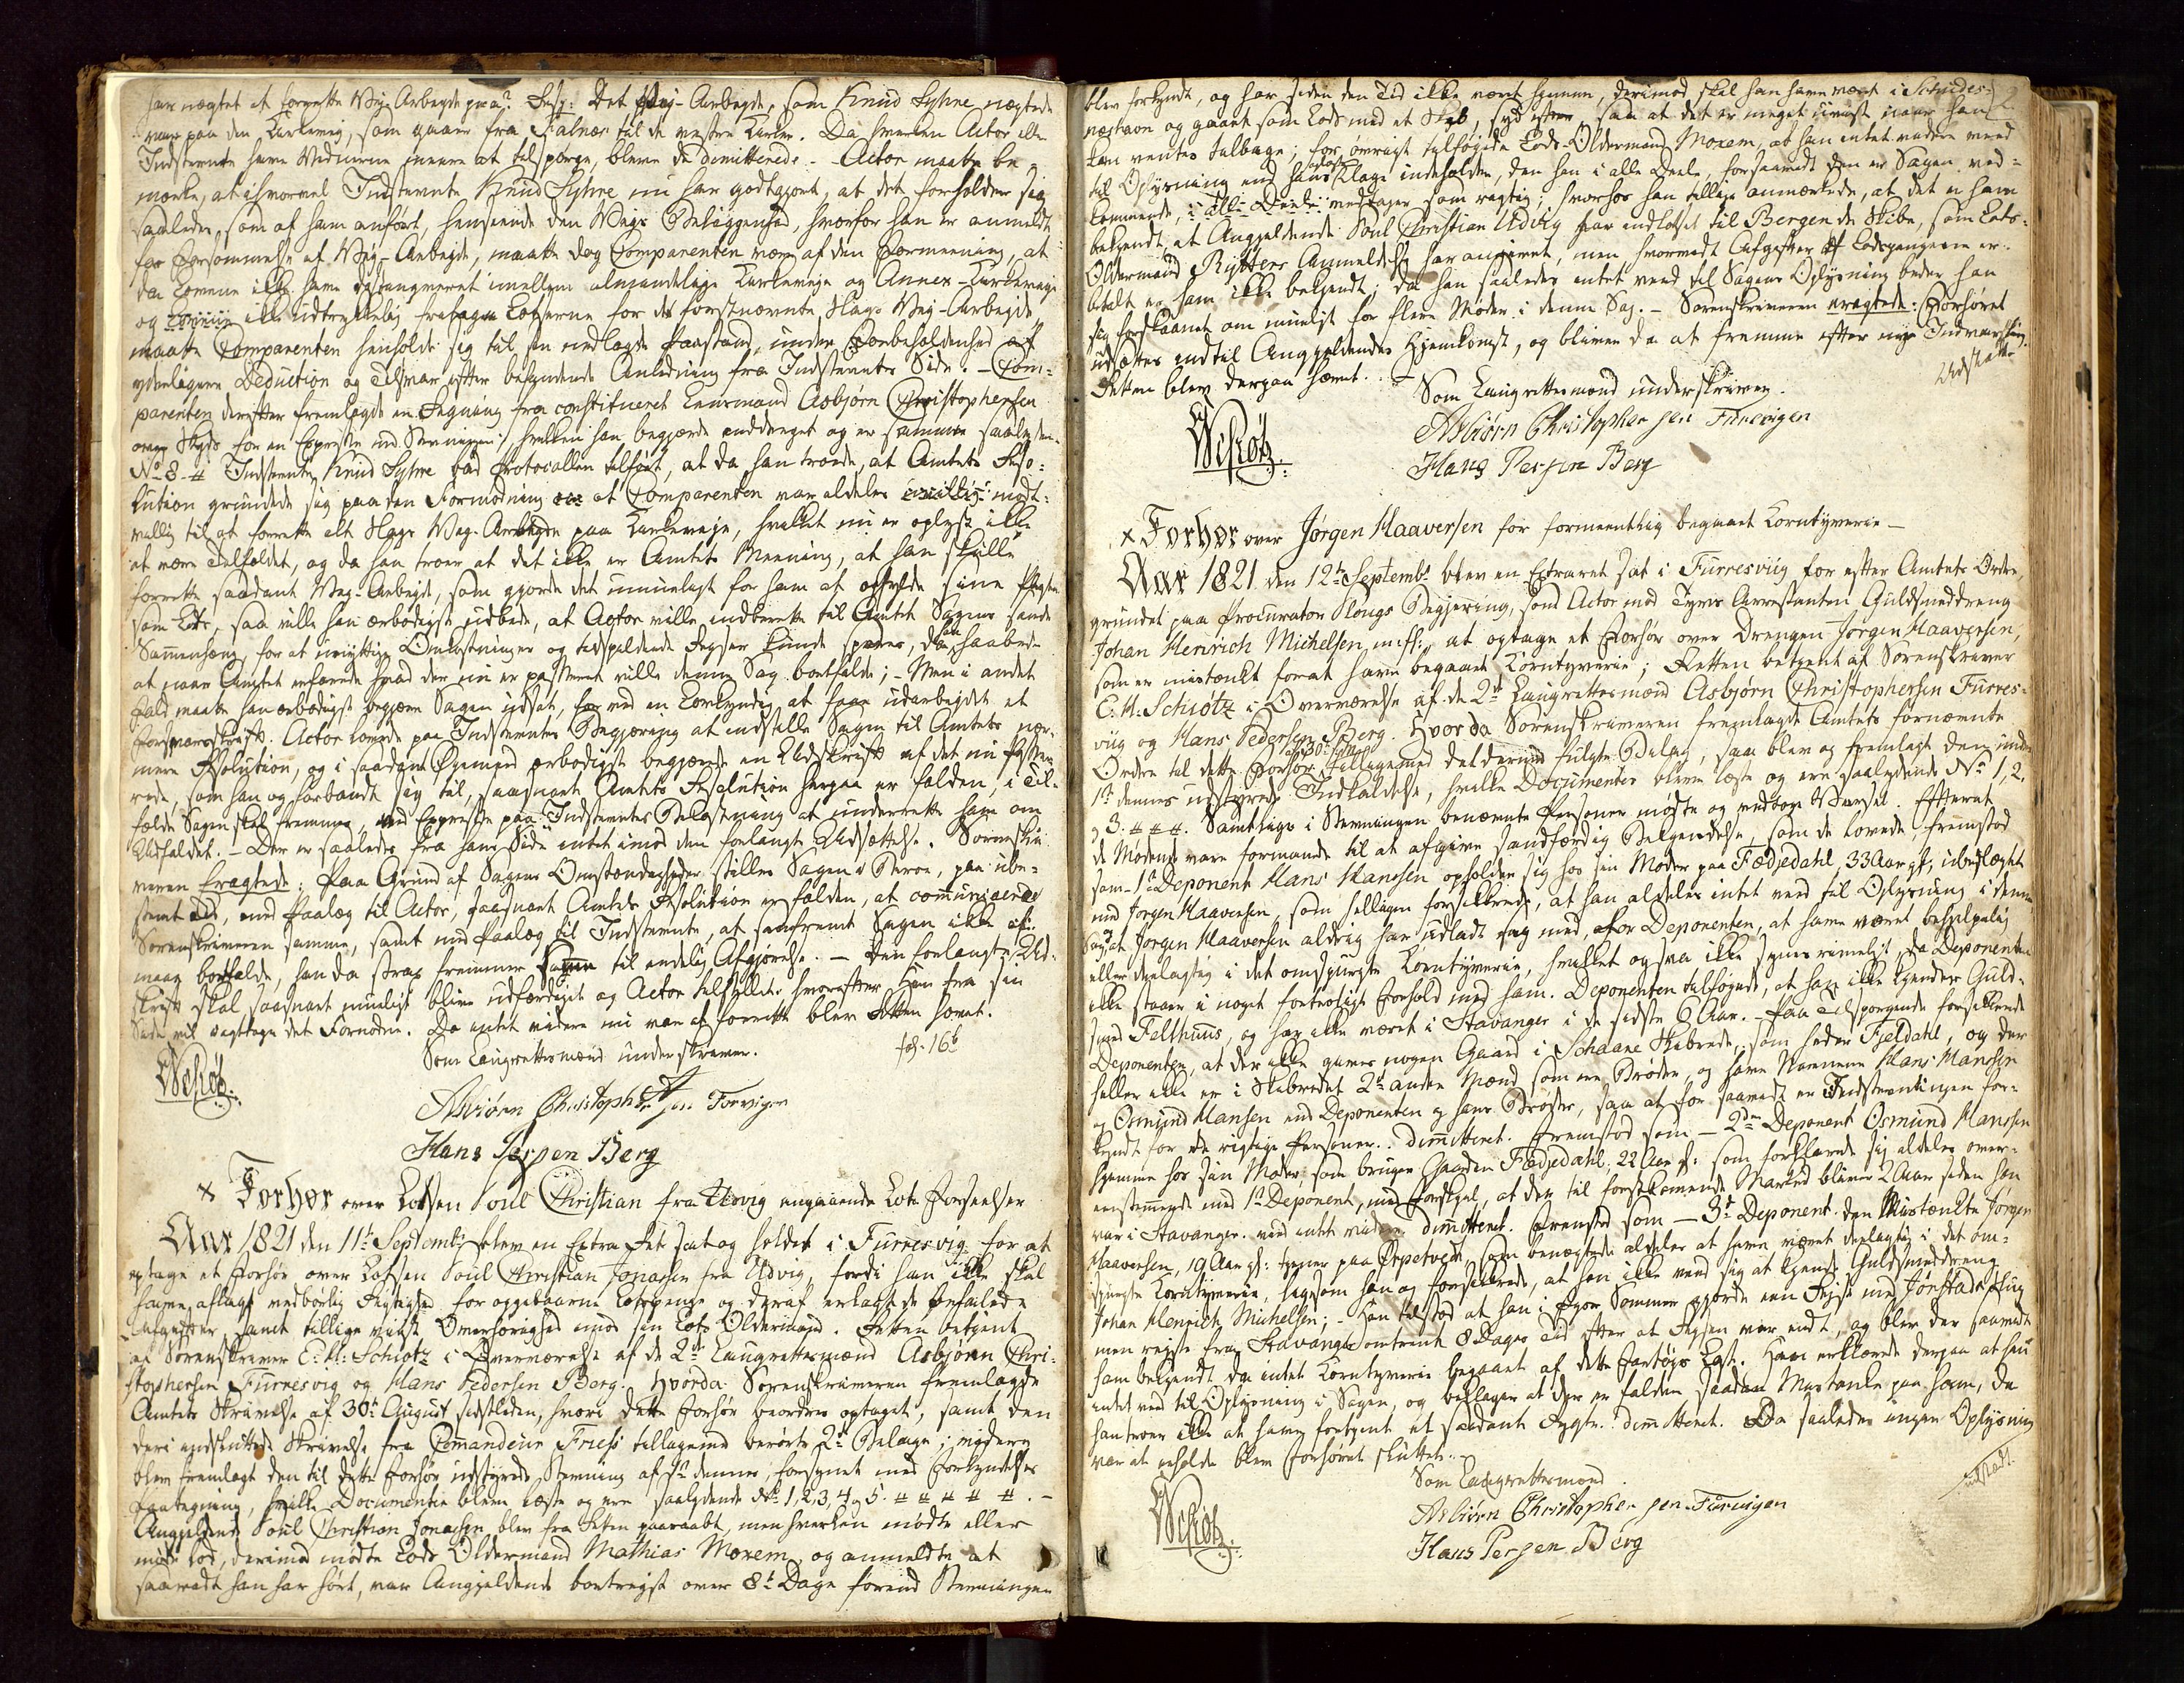 har nægtet at forrette Vej-Arbeyde paa? Resp: Det Vej-Arbeyde, som Knud Syhre nægtede
var paa den Kirkeveij, som gaaer fra Falnæs til de vestre Kirker. Da hverken Actor eller
Indstevnte havde Vidnerne meere at tilspørge, bleve de dimitterede. - Actor maatte be-
mærke, at ihvorvel Indstevnte Knud Syhre nu har godtgjort, at det forholder sig
saaledes, som af ham anført, henseende den Veys Beliggenhed, hvorfor han er anmeldt
for Forsømmelse af Vej-Arbeyde, maatte dog Comparenten være af den Formeening, at
da Lovene ikke have distingveret imellem almindelige Kirkeveje og Annex-Kirkeveje
og ikke udtrykkelig fritager Lotserne for det førstnævnte Slags Vej-Arbeyde,
maatte Comparenten henholde sig til sin nedlagte Paastand, under Forbeholdenhed af
yderligere Deduction og Tilsvar efter befindende Anledning fra Indstevntes Side. - Com-
parenten derefter fremlagde en Regning fra constitueret Lensmand Asbjørn Christophersen
over Skyds for en Expresse med Stevningen, hvilken han begjærede inddraget og er samme saalyden-
No 8. # Indstevnte Knud Syhre bad Protocollen tilført, at da han troede, at Amtets Reso-
lution grundede sig paa den Formodning at Comparenten var aldeles modt-
villig til at forrette alt Slags Vej-Arbeyde paa Kirkeveje, hvilket nu er oplyst ikke
at være Tilfældet, og da han troer at det ikke er Amtets Meening, at han skulle
forrette saadant Vej-Arbeyde, som gjorde det umueligt for ham at opfylde sine Pligter
som Lots, saa ville han ærbødigst udbede, at Actor ville indberette til Amtet Sagens sande
Sammenhæng, for at unyttige Omkostninger og tidspildende Reyser kunde spares, da han haabede
at naar Amtet erfarede hvad der nu er passeret ville denne Sag bortfalde; - Men i andet
Fald maatte han ærbødigst begjære Sagen udsat, for ved en Lovkyndig at faae udarbeydet et
Forsvarsskrift. Actor lovede paa Indstevntes Begjæring at indstille Sagen til Amtets nær-
mere Resolution, og i saadant Øyemed ærbødigst begjærede en Udskrift af det nu passe-
rede, som han og forbandt sig til, saasnart Amtets Resolution herpaa er falden, i Til-
fælde Sagen skal fremmes, ved Expresse paa Indstevntes Bekostning at underrette ham om
Udfaldet. - Der er saaledes fra hans Side intet imod den forlangte Udsættelse. Sorenskri-
veren Eragtede: Paa Grund af Sagens Omstændigheder stilles Sagen i Beroe, paa ube-
stemt Tid, med Paalæg til Actor, saasnart Amtets Resolution er falden, at communicere
Sorenskriveren samme, samt med Paalæg til Indstevnte, at saafremt Sagen ikke
maae bortfalde, han da strax fremmer Sagen til endelig Afgjørelse. - Den forlangte Ud-
skrift skal saasnart mueligt blive udfærdiget og Actor tilstillet hvorefter han fra sin
Side vil iagttage det Fornødne. Da intet videre nu var at forrette blev Retten hævet.
Som Laugrettesmænd underskriver. fol. 16b
WSchiøtz
Asbiørn Christophersen Forvigen
Hans Persen Berg
x Forhør over Lotsen Poul Christian fra Udvig angaaende Lots Forseelser
Aar 1821 den 11te Septembr blev en Extra Ret sat og holdet i Furresvig for at
optage et Forhør over Lotsen Poul Christian Jonassen fra Udvig, fordi han ikke skal
have aflagt vedbørlig Rigtighed for oppebaarne Lotspenge og deraf erlagt de befalede
Afgifter, samt tillige viist Overhørighed imod sin Lots Oldermand. Retten betjent
af Sorenskriver E: H: Schiøtz i Overværelse af de 2de Laugrettesmænd Asbjørn Chri-
stophersen Furresvig og Hans Pedersen Berg. Hvorda Sorenskriveren fremlagde
Amtets Skrivelse af 30te August sidstleden, hvori dette Forhør beordres optaget, samt den
deri indsluttede Skrivelse fra Commandeur Friess tilligemed berørte 2de Bilage; ydere
blev fremlagt den til dette Forhør udstyrede Stevning af 1te dennes, forsynet med Forkyndelses
Paategning, hvilke Documenter bleve læste og ere saalydende No 1, 2, 3, 4 og 5. # # # # #. -
Angjeldende Poul Christian Jonassen blev fra Retten paaraabt, men hverken mødte eller
møde lod, derimod mødte Lods Oldermand Mathias Morem, og anmeldte at
saavidt han har hørt, var Angjeldende bortrejst over 8te Dage førend Stevningen
2
blev forkyndt, og har siden den Tid ikke været hjemme, derimod skal han have været i Skudes-
næshavn og gaaet som Lods med et Skib, syd efter, saa at det er meget uvist, naar han
kan ventes tilbage; for øvrigt tilføyede Lods-Oldermand Morem, at han intet videre veed
til Oplysning end hans Klage indeholder, den han i alle Deele, forsaavidt den er Sagen ved-
kommende, i alle Deele vedtager som rigtig; hvorhos han tillige anmærkede, at det er ham
bekjendt, at Angjeldende Poul Christian Udvig har indlodset til Bergen de Skibe, som Lots-
Oldermand Rytters Anmeldelse har anføret, men hvorvidt Afgifter af Lodspengene er
betalt er ham ikke bekjendt; da han saaledes intet veed til Sagens Oplysning beder han
sig forskaanet om mueligt for flere Møder i denne Sag. - Sorenskriveren eragtede: Forhøret
udsættes indtil Angjeldendes Hjemkomst, og bliver da at fremme efter nye Indvarsling.
Retten blev derpaa hævet. -
Udstædt
Som Laugrettesmænd underskriver.
WSchiøtz
Asbiørn Christophersen Furevigen
Hans Persen Berg
x Forhør over Jørgen Haaversen for formeentlig begaaet Korntyverie -
Aar 1821 den 12te Septembr blev en Extraret sat i Furresviig for efter Amtets Ordre,
grundet paa Procurator Plougs Begjering, som Actor mod Tyvs Arrestanten Guldsmeddreng
Johan Henrich Michelsen m: fl: at optage et Forhør over Drengen Jørgen Haaversen,
som er mistænkt forat have begaaet Korntyverie; Retten betjent af Sorenskriver
E: H: Schiøtz i Overværelse af de 2de Laugrettesmænd Asbjørn Christophersen Furres-
viig og Hans Pedersen Berg. Hvorda Sorenskriveren fremlagde Amtets fornævnte
Ordre til dette Forhør af 30te f: M: tilligemed det derved fulgte Bilag, saa blev og fremlagt den under
1te dennes udstyrede Indkaldelse, hvilke Documenter bleve læste og ere saalydende No 1, 2,
og 3. # # #. Samtlige i Stevningen benævnte Personer mødte og vedtog Varsel. Efterat
de Mødende vare formanede til at afgive sandfærdig Bekjendelse, som de lovede, fremstod
som - 1ste Deponent Hans Hansen opholder sig hos sin Moder paa Fædjedahl, 33 Aar gl: ubeslægtet
med Jørgen Haaversen, som helligen forsikkrede, at han aldeles intet veed til Oplysning i denne
Sag, at Jørgen Haaversen aldrig har udladt sig med, for Deponenten, at have været behjelpelig
eller deelagtig i det omspurgte Korntyverie, hvilket og saa ikke synes rimeligt, da Deponenten
ikke staaer i noget fortroligt Forhold med ham. Deponenten tilføyede, at han ikke kjender Guld-
smed Felthuus, og har ikke været i Stavanger i de sidste 6 Aar. - Paa Tilspørgende forsikkrede
Deponenten, at der ikke gives nogen Gaard i Schaane Skibrede, som heder Fjeldahl, og der
heller ikke er i Skibredet 2de andre Mænd som er Brødre, og have Navnene Hans Hansen
og Osmund Hansen end Deponenten og hans Broder, saa at for saavidt er Indstevningen for-
kyndt for de rigtige Personer. dimitteret. Fremstod som - 2den Deponent Osmund Hansen
hjemme hos sin Moder som bruger Gaarden Fædjedahl, 22 Aar gl: som forklarede sig aldeles over-
eensstemmende med 1ste Deponent, med Forskjel, at der til førstkomende Marked bliver 2 Aar siden han
var i Stavanger. veed intet videre. dimitteret. Fremstod som - 3de Deponent den Mistænkte Jørgen
Haaversen, 19 Aar gl: tjener paa Orpetvedt, som benægtede aldeles at have været deelagtig i det om-
spurgte Korntyverie, ligesom han og forsikkrede, at han ikke veed sig at kjende Guldsmeddreng
Johan Henrich Michelsen; - Han tilstod at han i Fjor Sommer gjorde een Rejse med Jonstads
men rejste fra Stavanger omtrent 8 Dages Tid efter at Rejsen var endt, og blev der saavidt
ham bekjendt da intet Korntyverie begaaet af dette Fartøjs Last. Han erklærede derpaa at han
intet veed til Oplysning i Sagen, og beklager at der er falden saadan Mistanke paa ham, da
han troer ikke at have fortjent et saadant Rygte. dimitteret. Da saaledes ingen Oplysning
var at erholde blev Forhøret sluttet. -
udstædt.
Som Laugrettesmænd
WSchiøtz
Asbiørn Christophersen Furuigen
Hans Persen Berg